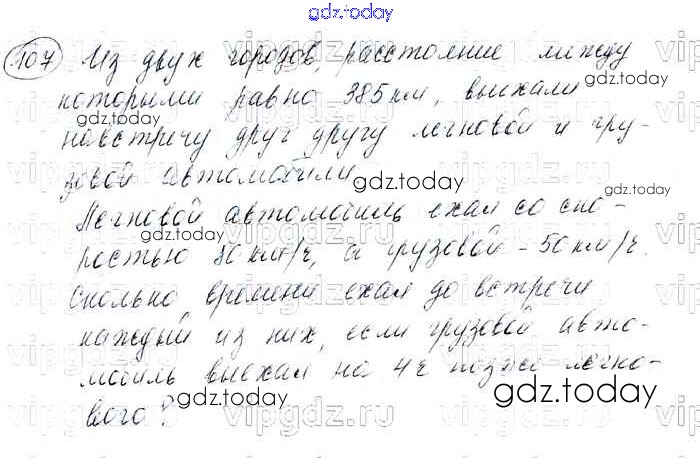 gdz.today
107 Из двух городов, расстояние между
которыми равно 385 км, выехали
gdz.today
gdz.today
навстречу друг другу легковой и гру-
зовой автомобили.
gdz.today
gdz.today
Легковой автомобиль ехал со ско-
gdz.today
ростью 80 км/ч, а грузовой - 50 км/ч.
Сколько времени ехал до встречи
каждый из них, если грузовой авто-
мобиль выехал на 4 ч позже легко-
gdz.today
gdz.today
вого?